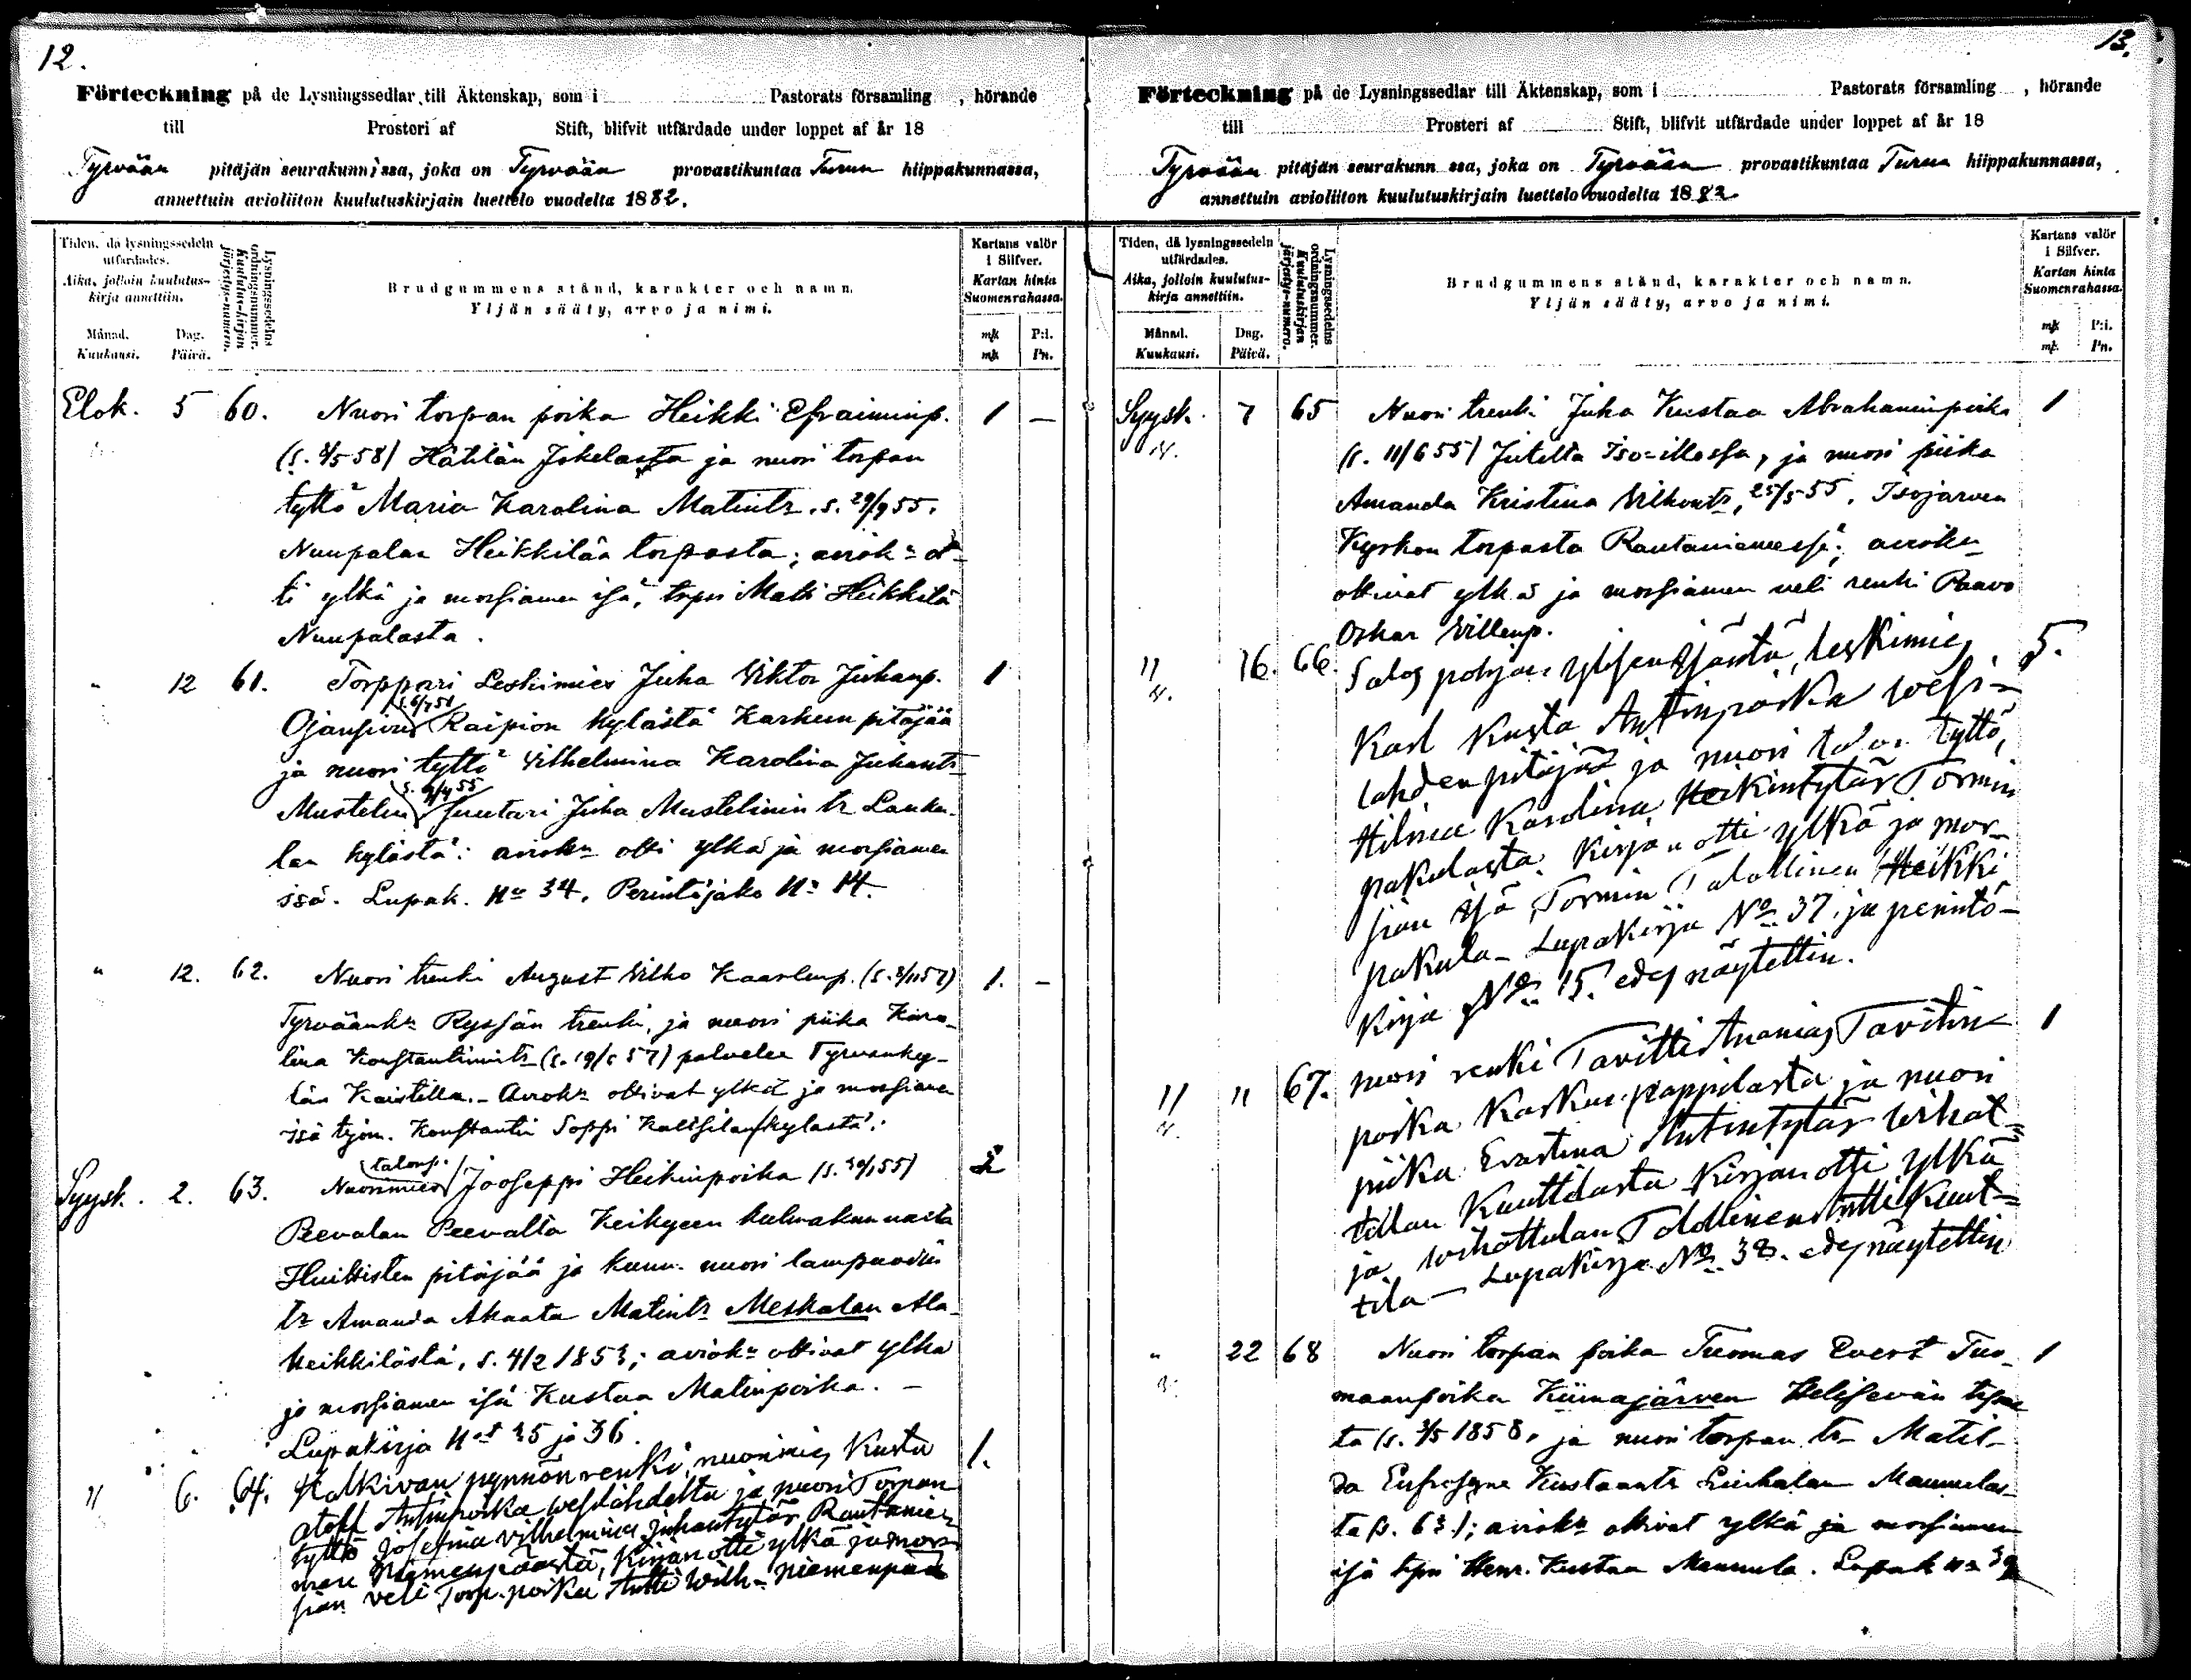 12.
Förteckning på de Lysningssedlar till Äktenskap, som i Pastorats församling , hörande
till Prosteri af Stift, blifvit utfärdade under loppet af år 18
Tyrvään pitäjän seurakunnissa, joka on Tyrvään provastikuntaa Turun hiippakunnassa,
annettuin avioliiton kuulutuskirjain luettelo vuodelta 1882.
Tiden, då lysningssedeln utfärdades.
Aika, jolloin kuulutuskirja annettiin.
Månad. Dag.
Kuukausi. Päivä.
Lysningssedelns ordningsnummer.
Kuulutus-kirjan järjestys-numero.
Brudgummens stånd, karakter och namn.
Yljän sääty, arvo ja nimi.
Kartans valör i Silfver.
Kartan hinta Suomenrahassa.
mk P:i.
mk Pn.
Elok. 5 60. Nuori torpan poika Heikki Efraiminp. 1 —
58) Hätilän Jokelasta ja nuori torpan
tyttö Maria Karolina Matintr. s. 29/9 55.
Nuupalan Heikkilän torpasta; aviok:n ot-
ti ylkä ja morsiamen isä, torpri Matti Heikkilä
Nuupalasta.
" 12 61. Torppari Leskimies Juha Viktor Juhanp. 1
Ojansivu Raipion kylästä Karkun pitäjää
ja nuori tyttö Vilhelmina Karolina Juhantr
Mustelin Suutari Juha Mustelinin tr Lauku-
lan kylästä: aviok:n otti ylkä ja morsiamen
isä. Lupak. No 34. Perintöjako No 14.
" 12. 62. Nuori trenki August Vilho Kaarlenp. 1. -
Tyrväänk. Ryssän trenki, ja nuori piika Karo-
lina Konstantinintr (s. 19/6 57) palvelee Tyrvänky-
län Kaistilla.- Aviok:n ottivat ylkä ja morsiamen
isä työm. Konstantin Soppi Kallsilan kylästä.
Syysk. 2. 63. Nuorimies talons. Jooseppi Heikinpoika (s. 30/1 55) 2
Peevalan Peevalta Keikyeen kulmakunnasta
Huittisten pitäjää ja kunn. nuori lampuodin
tr Amanda Akaata Matintr Meskalan Ala-
heikkilästä, s. 4/2 1853; aviok:n ottivat ylkä
ja morsiamen isä Kustaa Matinpoika. -
Lupakirja N:ot 35 ja 36.
" 6. 64. Kalkivan pynnön renki, nuorimies Kusta 1.
Antinpoika wesilahdelta ja nuori Torpan
tyttö Josefina Vilhelmina Juhantytär Rautanie-
men Niemenpäästä, Kirjan otti ylkä ja mor-
sian veli Torp. poika Antti Wilh. Niemenpää
13.
Förteckning på de Lysningssedlar till Äktenskap, som i Pastorats församling , hörande
till Prosteri af Stift, blifvit utfärdade under loppet af år 18
Tyrvään pitäjän seurakunn ssa, joka on Tyrvään provastikuntaa Turun hiippakunnassa,
annettuin avioliiton kuulutuskirjain luettelo vuodelta 1882
Tiden, då lysningssedeln utfärdades.
Aika, jolloin kuulutuskirja annettiin.
Månad. Dag.
Kuukausi. Päivä.
Lysningssedelns ordningsnummer.
Kuulutuskirjan järjestys-numero.
Brudgummens stånd, karakter och namn.
Yljän sääty, arvo ja nimi.
Kartans valör i Silfver.
Kartan hinta Suomenrahassa.
mk P:i.
mk. Pn.
Syysk. 7 65 Nuori trenki Juha Kustaa Abrahaminpoika 1
(s. 11/6 55) Jutilla Iso-illossa, ja nuori piika
Amanda Kristina Vilhontr, 25/5 55, Isojärven
Kyrkon torpasta Rautaniemessä; aviok:n
ottivat ylkä ja morsiamen veli renki Paavo
Oskar Villenp.
" 16. 66. isäntä, leskimies 5.
Karl Kusta Antinpoika wesi-
lahden pitäjää ja nuori talon tyttö,
Hilma Karolina Heikintytär Tormin
pakulasta. Kirjan otti ylkä ja mor-
sian isä, Tormin Talollinen Heikki
pakula - Lupakirja No 37. ja perintö-
kirja No 15. edesnäytettiin.
" " 67. nuori renki Tavitti Ananias Tavitin 1
poika Karkun pappilasta ja nuori
piika Evastina Antintytär wihat-
tulan Kuuttilasta Kirjan otti ylkä
ja wihattulan Talollinen Antti Kuut-
tila - Lupakirja No 38. edesnäytettiin
" 22 68 Nuori torpan poika Tuomas Evert Tuo- 1
maanpoika Kiimajärven Helisevän torpas-
ta (s. 3/5 1858, ja nuori torpan tr Matil-
da Eufrosyne Kustaantr Liuhalan Mannulas-
ta (s. 63); aviok:n ottivat ylkä ja morsiamen
isä tpri Henr. Kustaa Mannula. Lupak No 39